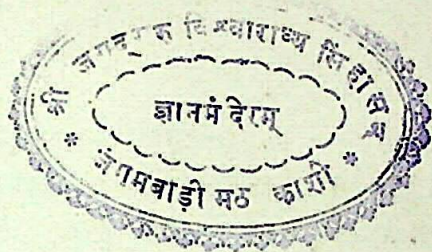 श्री जगद्गुरु विश्वाराध्य सिंहासन
ज्ञानमंदिरम्
* जंगमबाड़ी मठ काशी *